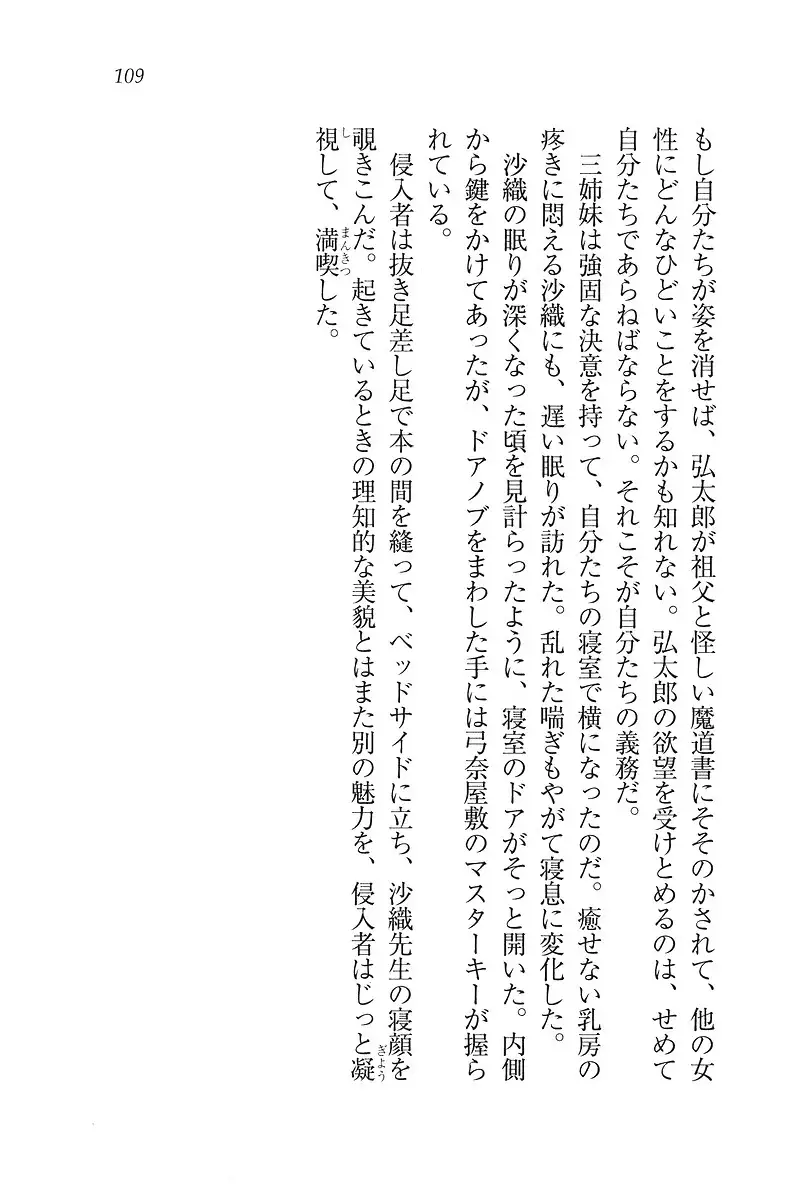 109
もし自分たちが姿を消せば、弘太郎が祖父と怪しい魔道書にそそのかされて、他の女
性にどんなひどいことをするかも知れない。弘太郎の欲望を受けとめるのは、せめて
自分たちであらねばならない。それこそが自分たちの義務だ。
三姉妹は強固な決意を持って、自分たちの寝室で横になったのだ。癒せない乳房の
疼きに悶える沙織にも、遅い眠りが訪れた。乱れた喘ぎもやがて寝息に変化した。
沙織の眠りが深くなった頃を見計らったように、寝室のドアがそっと開いた。内側
から鍵をかけてあったが、ドアノブをまわした手には弓奈屋敷のマスターキーが握ら
れている。
侵入者は抜き足差し足で本の間を縫って、ベッドサイドに立ち、沙織先生の寝顔を
覗きこんだ。起きているときの理知的な美貌とはまた別の魅力を、侵入者はじっと凝
ぎょう
視して、満喫した。
し
まんきつ